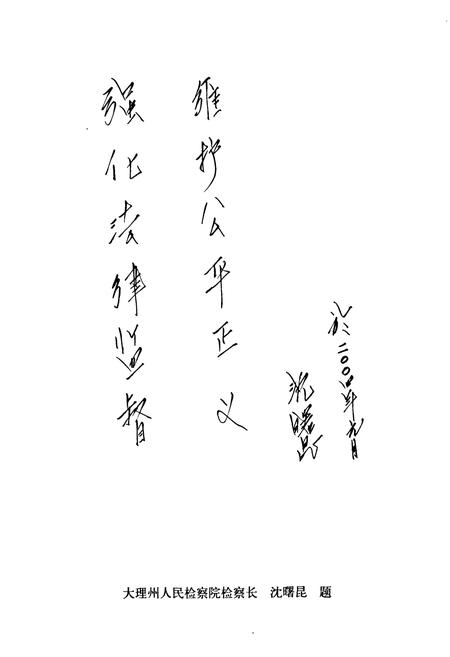 强化法律监督
维护公平正义
沈曙昆
於二〇〇四年元月
大理州人民检察院检察长 沈曙昆 题